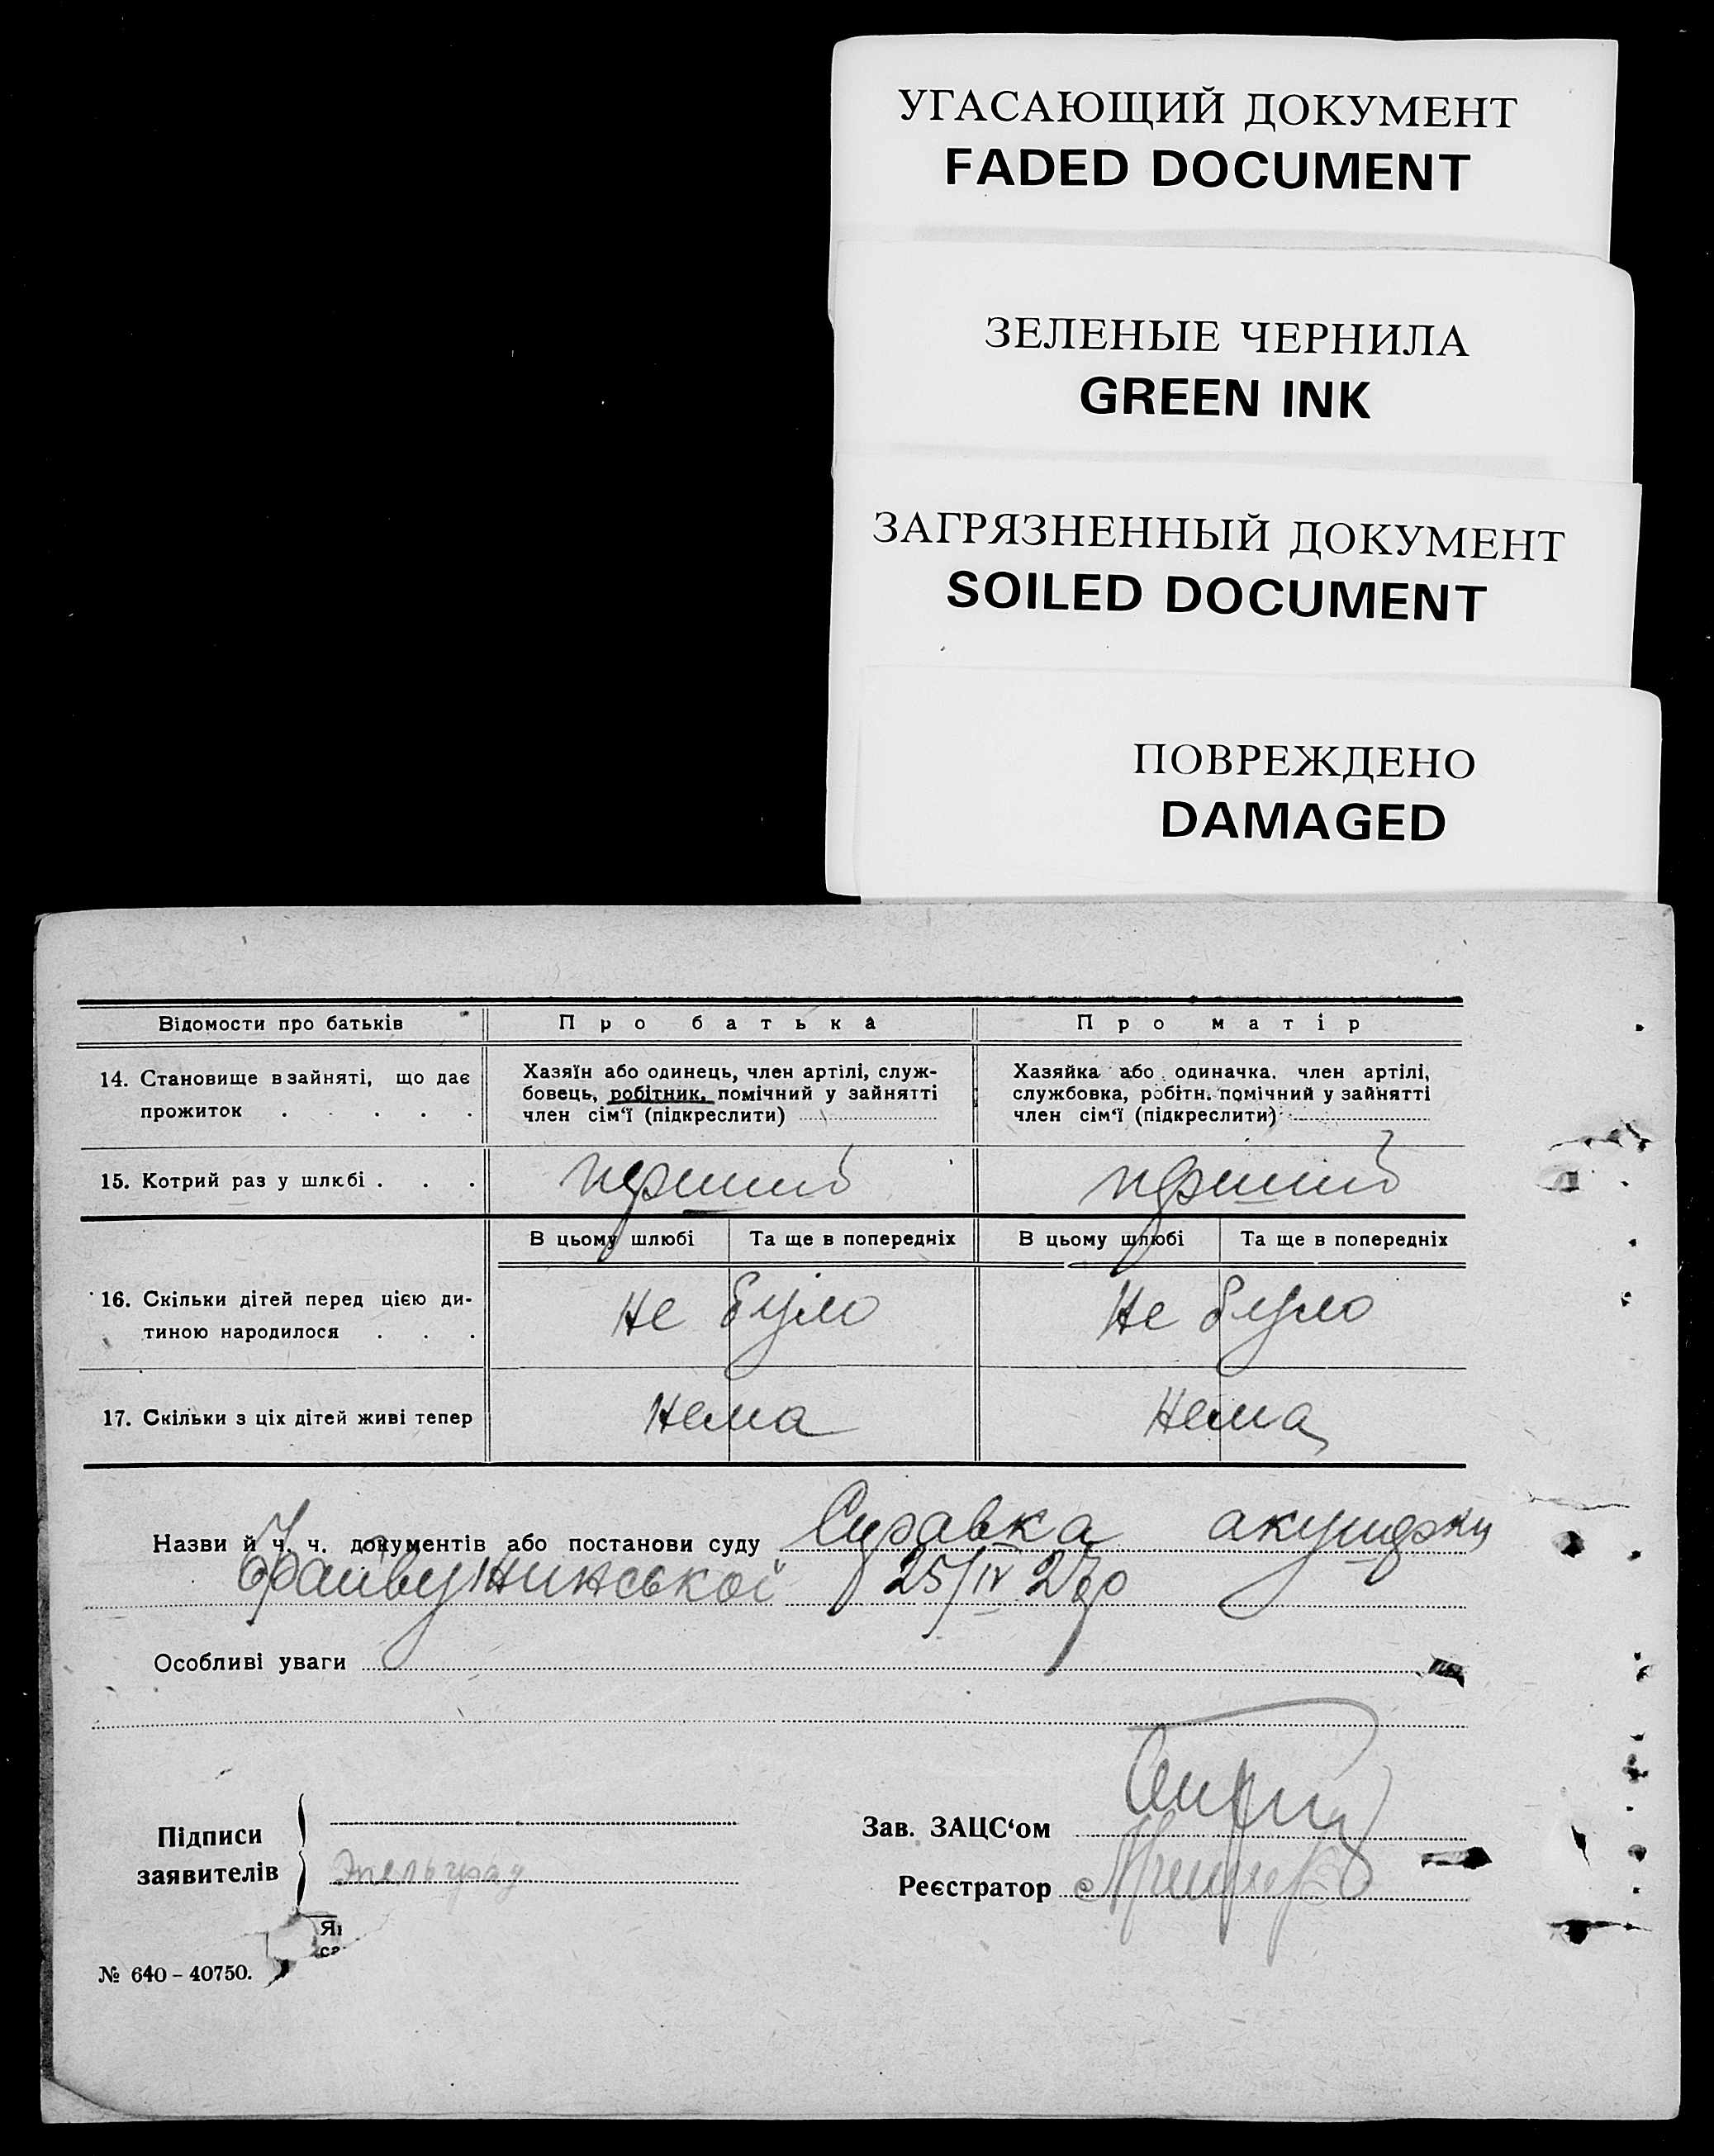 УГАСАЮЩИЙ ДОКУМЕНТ
FADED DOCUMENT
ЗЕЛЕНЫЕ ЧЕРНИЛА
GREEN INK
ЗАГРЯЗНЕННЫЙ ДОКУМЕНТ
SOILED DOCUMENT
ПОВРЕЖДЕНО
DAMAGED
Відомости про батьків
Про батька
Про матір
14. Становище в зайняті, що дає
прожиток . . . . .
Хазяїн або одинець, член артілі, служ-
бовець, робітник, помічний у зайнятті
член сім'ї (підкреслити)
Хазяйка або одиначка. член артілі,
службовка, робітн. помічний у зайнятті
член сім'ї (підкреслити)
15. Котрий раз у шлюбі . . .
перший
перший
В цьому шлюбі
Та ще в попередніх
В цьому шлюбі
Та ще в попередніх
16. Скільки дітей перед цією ди-
тиною народилося . . .
не було
не було
17. Скільки з ціх дітей живі тепер
нема
нема
Назви й ч. ч. документів або постанови суду Справка акушерки
25/IV
Особливі уваги
Підписи
заявителів
Зав. ЗАЦС'ом
Реєстратор
№ 640 – 40750.